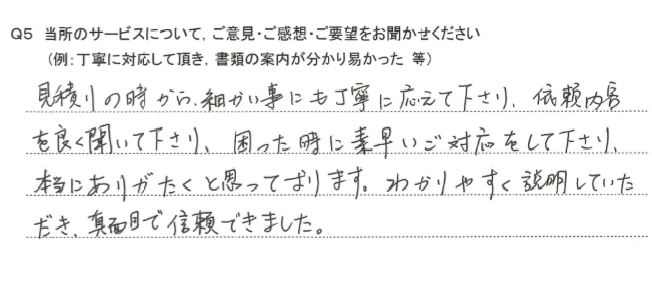 Q5 当所のサービスについて，ご意見・ご感想・ご要望をお聞かせください
（例：丁寧に対応して頂き，書類の案内が分かり易かった 等）
見積りの時から、細かい事にも丁寧に応えて下さり、依頼内容
を良く聞いて下さり、困った時に素早いご対応をして下さり、
本当にありがたくと思っております。わかりやすく説明していた
だき、真面目で信頼できました。